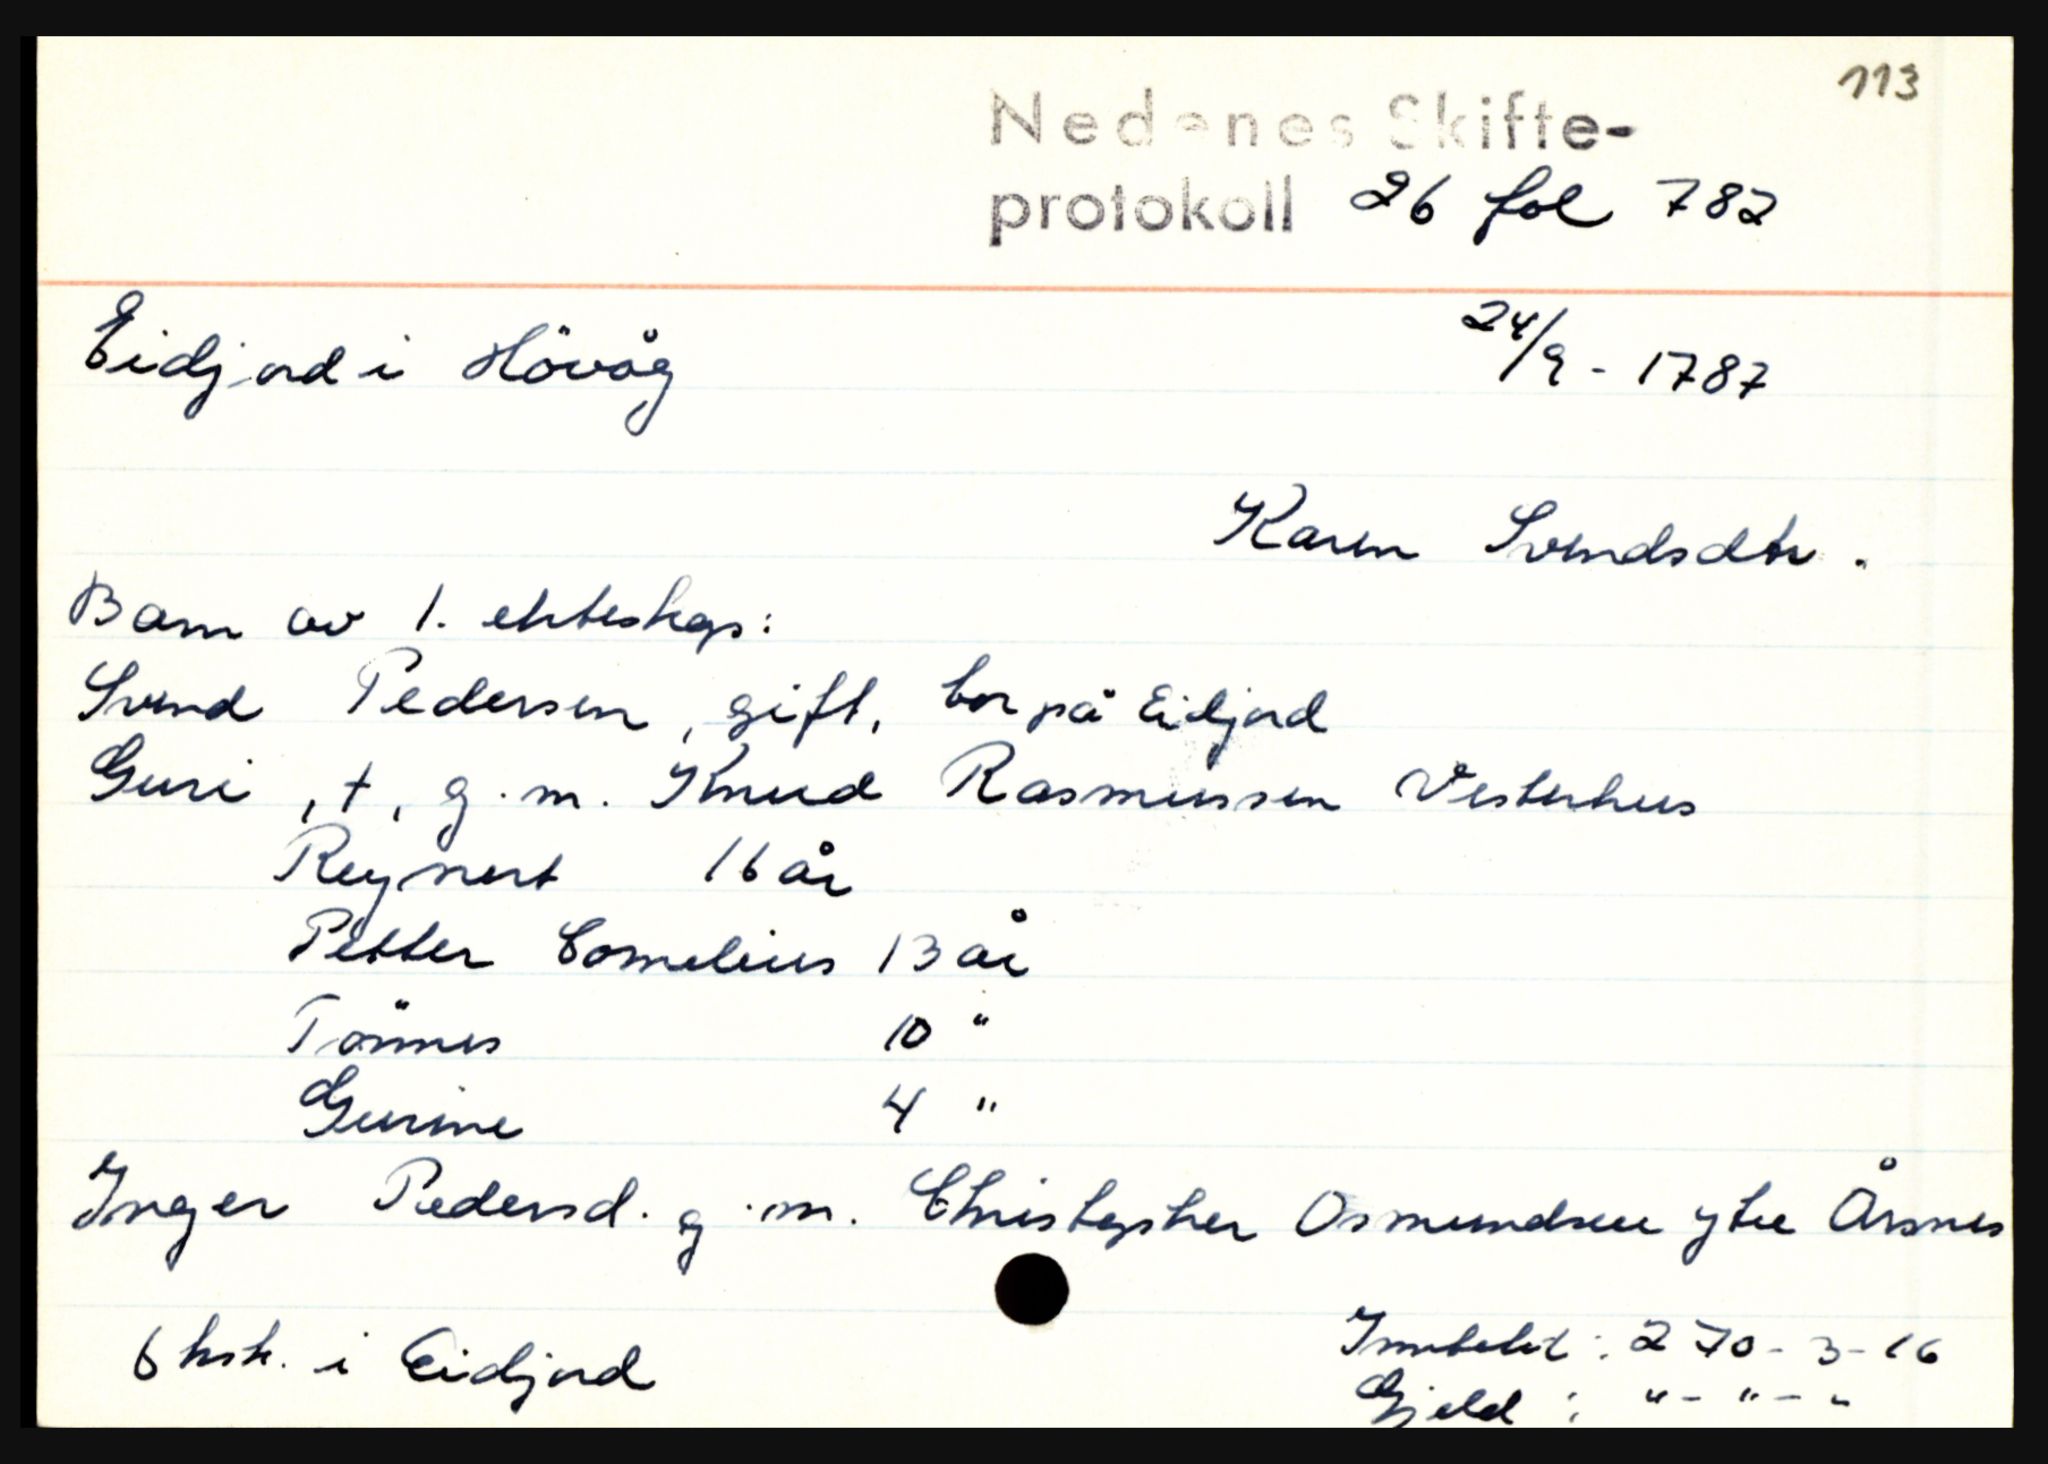 113
Nedenes Skifte-
protokoll 26 fol 782
Eidjord i Hövåg
24/9 - 1787
Karen Svendsdtr.
Barn av 1. ekteskap:
Svend Pedersen, gift, bor på Eidjord
Guri, †, g.m. Knud Rasmussen Vesterhus
Reynert 16 år
Petter Cornelius 13 år
Tönnes 10 "
Gurine 4 "
Inger Pedersd. g.m. Christopher Osmundsen ytre Årsnes
6 hsk. i Eidjord
Inntekt: 270-3-16
Gjeld: "-"-"